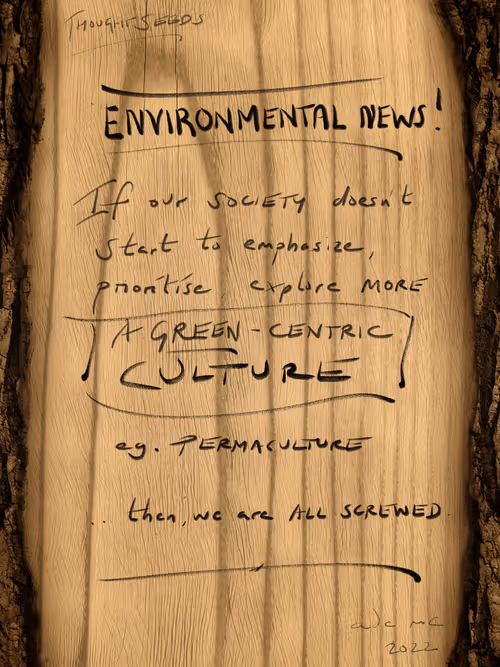 THOUGHTSEEDS
ENVIRONMENTAL NEWS!
If our SOCIETY doesn't
start to emphasize,
prioritise, explore MORE
A GREEN-CENTRIC
CULTURE
eg. PERMACULTURE
.. then, we are ALL SCREWED.
2022